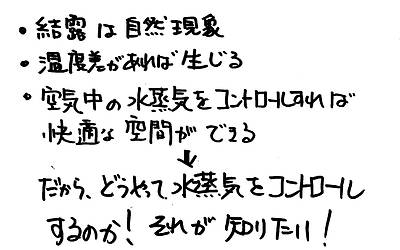 ・結露は自然現象
・温度差があれば生じる
・空気中の水蒸気をコントロールすれば
快適な空間ができる
↓
だから、どうやって水蒸気をコントロール
するのか！それが知りたい！